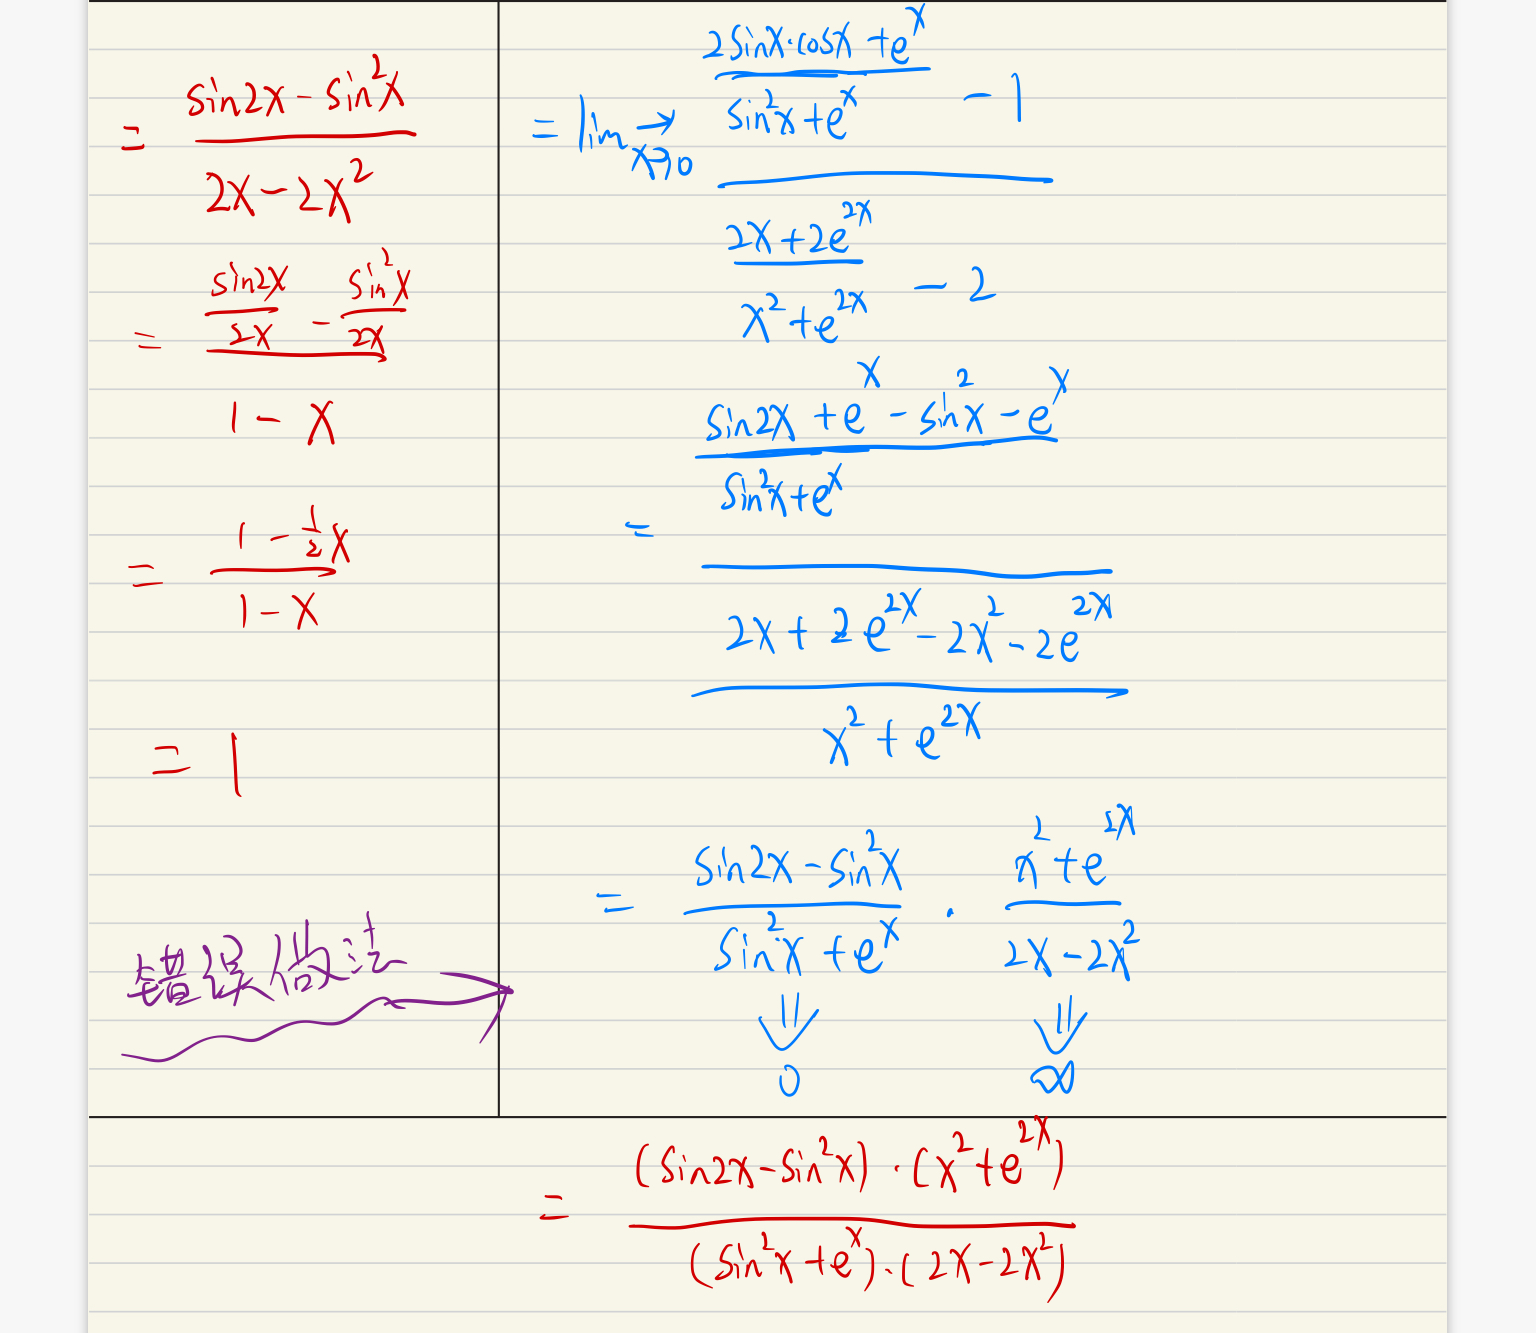 = (sin2x - sin²x) / (2x - 2x²)
= (sin2x/2x - sin²x/2x) / (1 - x)
= (1 - ½x) / (1 - x)
= 1
错误做法
= lim x→0 ((2sinx·cosx + e^x)/(sin²x + e^x) - 1) / ((2x + 2e^{2x})/(x² + e^{2x}) - 2)
= ((sin2x + e^x - sin²x - e^x)/(sin²x + e^x)) / ((2x + 2e^{2x} - 2x² - 2e^{2x})/(x² + e^{2x}))
= (sin2x - sin²x)/(sin²x + e^x) · (x² + e^{2x})/(2x - 2x²)
⇓ ⇓
0 ∞
= ((sin2x - sin²x)·(x² + e^{2x})) / ((sin²x + e^x)·(2x - 2x²))